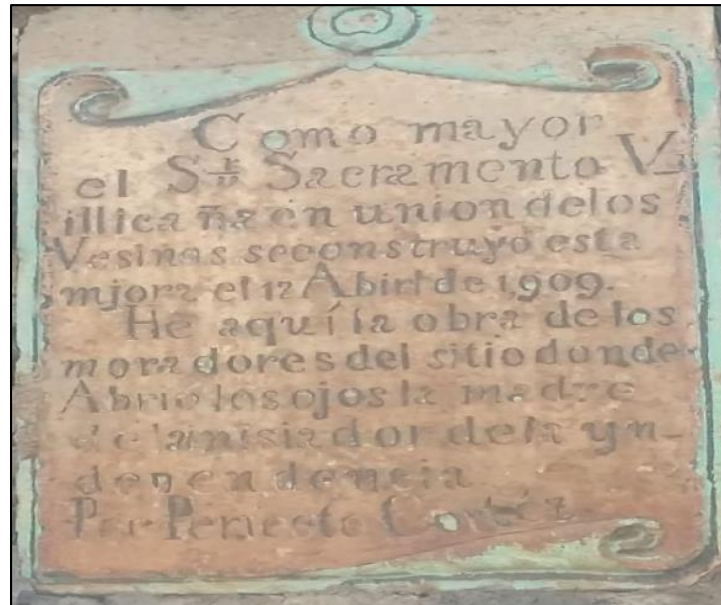 Como mayor
el Sr Sacramento V
illicaña en union delos
Vesinos seconstruyó esta
mjora el 12 Abirl de 1,909.
He aquí la obra de los
moradores del sitio donde
Abrio los ojos la madre
delanisiador dela yn-
dependencia
Por Perfecto Cortéz